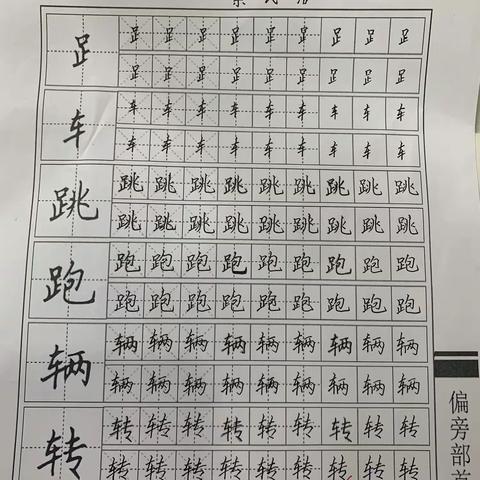 ⻊
⻊⻊⻊⻊⻊⻊⻊⻊⻊
⻊⻊⻊⻊⻊⻊⻊⻊⻊
车
车车车车车车车车车
车车车车车车车车车
跳
跳跳跳跳跳跳跳跳跳
跳跳跳跳跳跳跳跳跳
跑
跑跑跑跑跑跑跑跑跑
跑跑跑跑跑跑跑跑跑
辆
辆辆辆辆辆辆辆辆辆
辆辆辆辆辆辆辆辆辆
转
转转转转转转转转转
转转转转转转转转转
偏旁部首